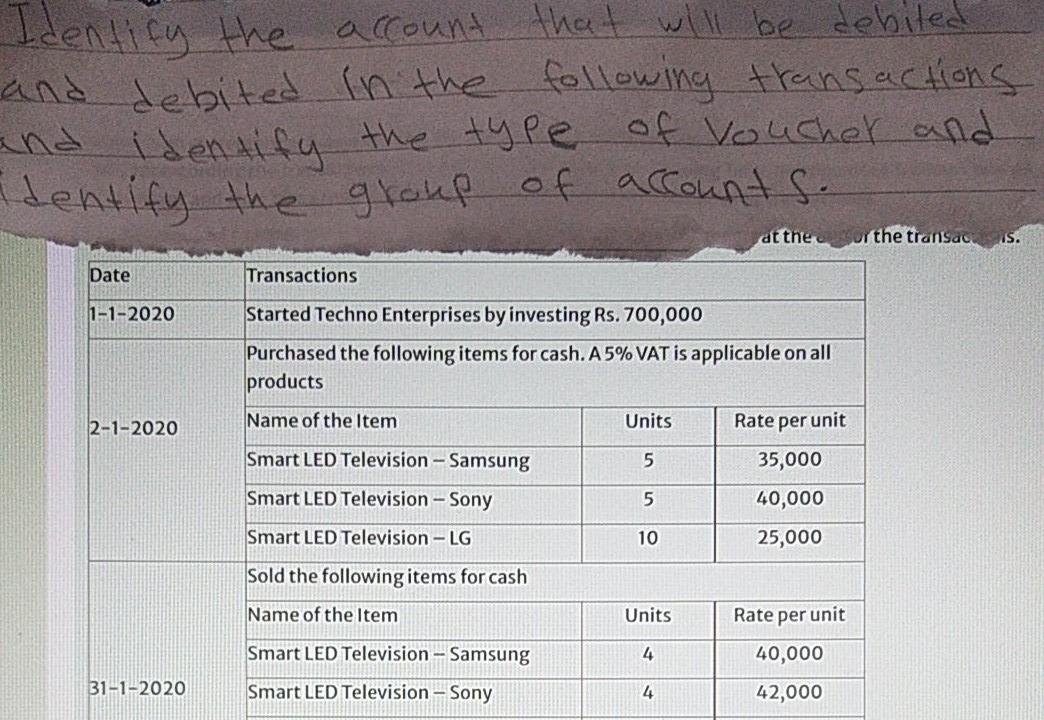 Identify the account that will be debited
and debited in the following transactions
and identify the type of Voucher and
identify the group of accounts.
at the of the transac is.
Date Transactions
1-1-2020 Started Techno Enterprises by investing Rs. 700,000
Purchased the following items for cash. A 5% VAT is applicable on all
products
2-1-2020 Name of the Item Units Rate per unit
Smart LED Television – Samsung 5 35,000
Smart LED Television – Sony 5 40,000
Smart LED Television – LG 10 25,000
Sold the following items for cash
Name of the Item Units Rate per unit
Smart LED Television – Samsung 4 40,000
31-1-2020 Smart LED Television – Sony 4 42,000